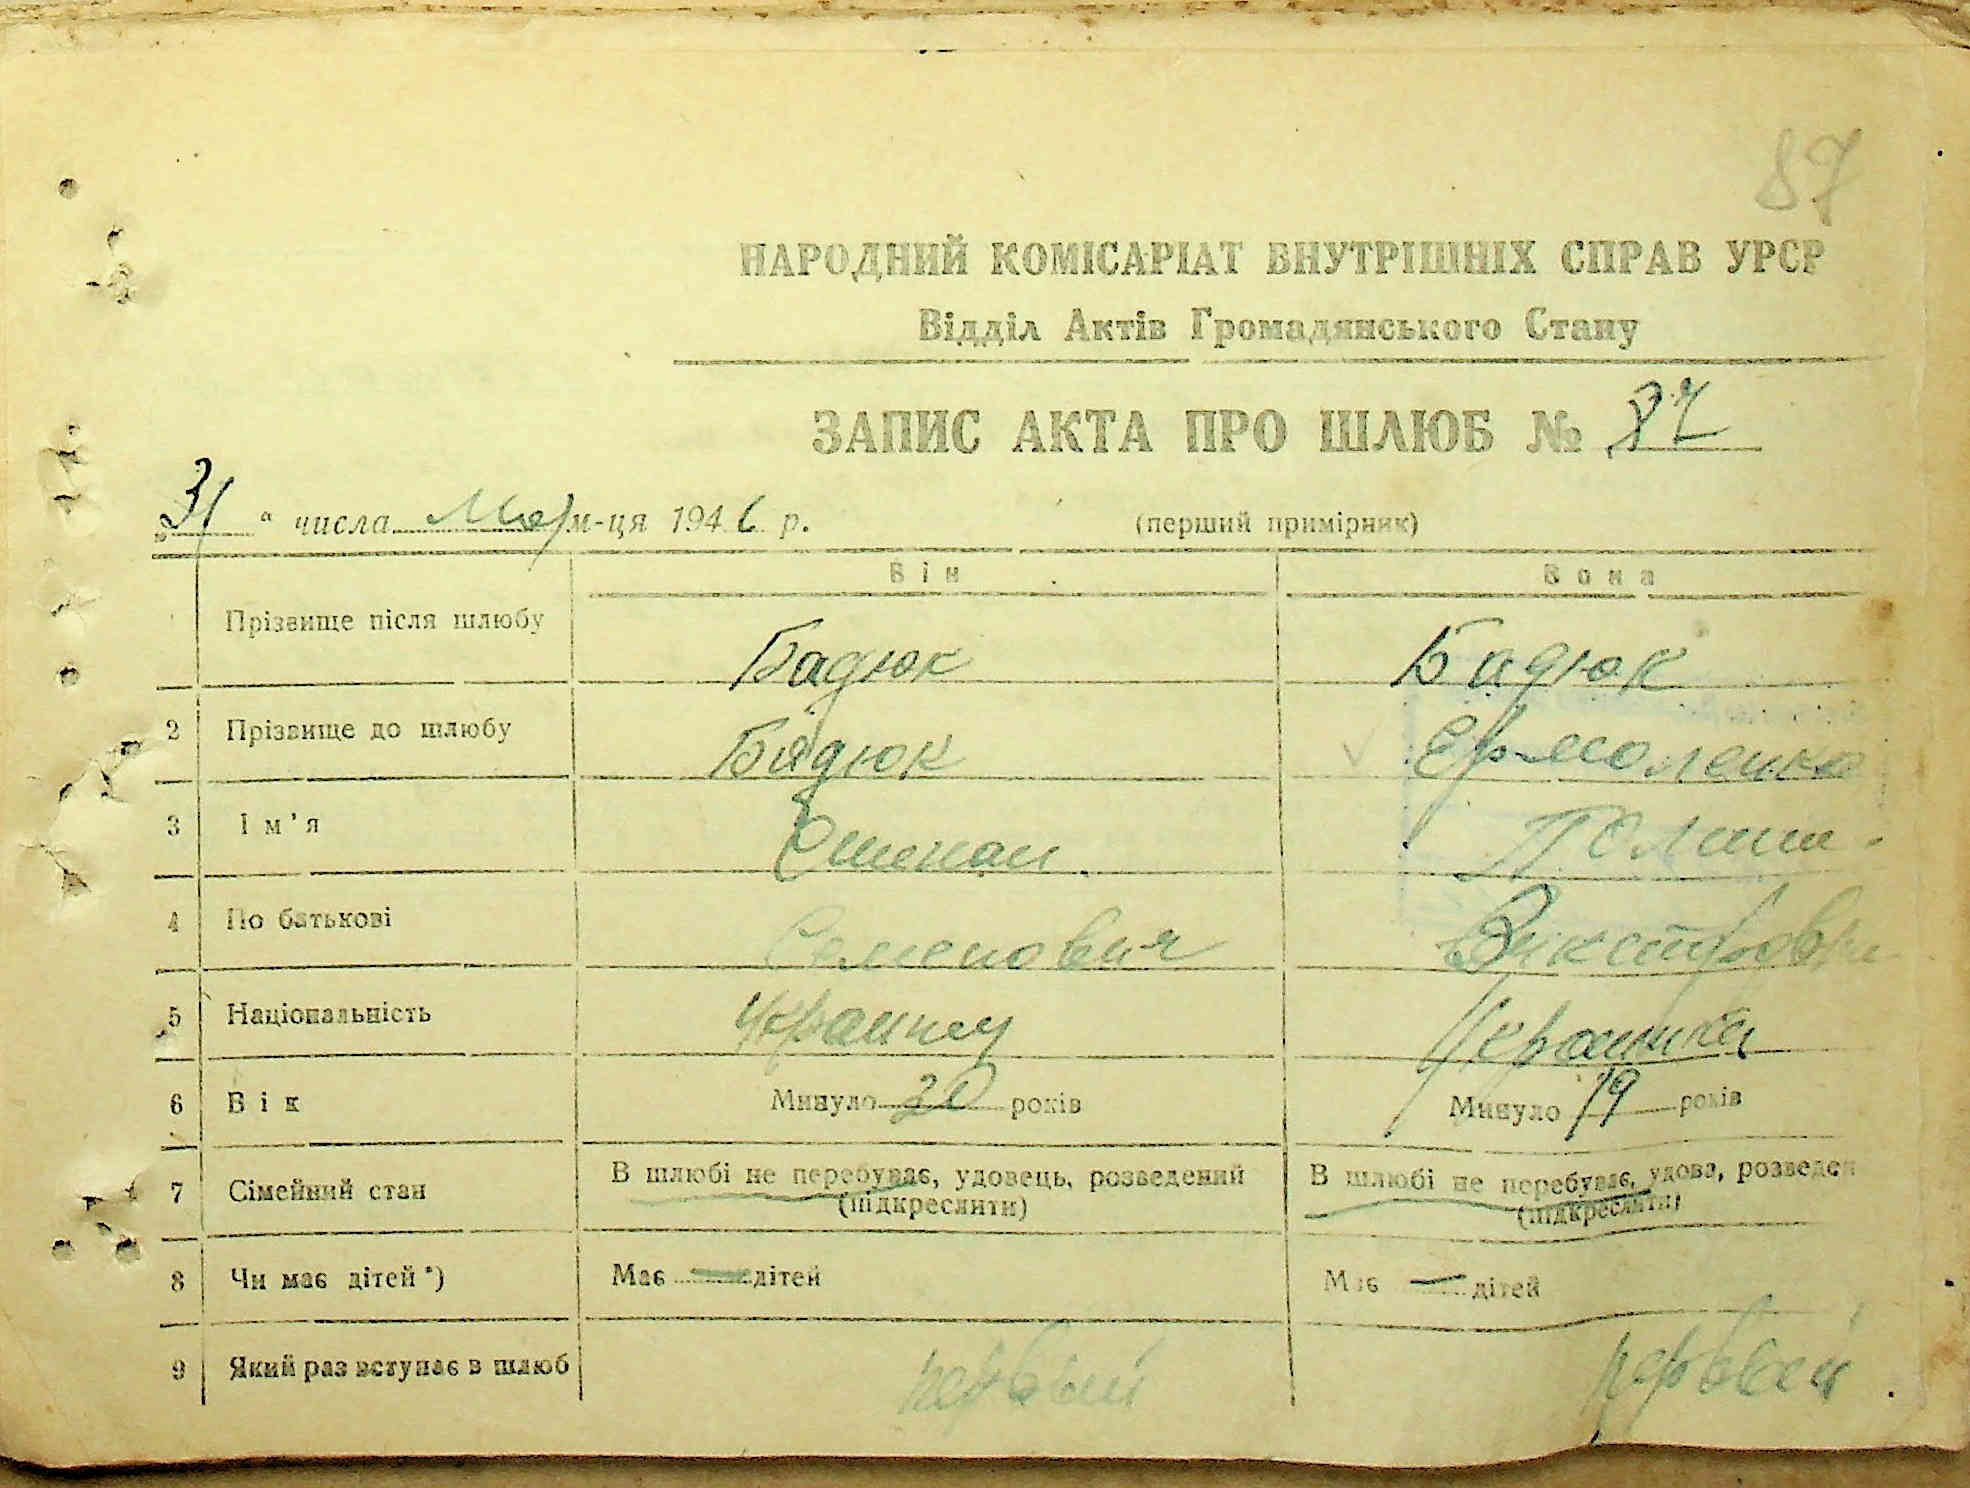 87
НАРОДНИЙ КОМІСАРІАТ ВНУТРІШНІХ СПРАВ УРСР
Відділ Актів Громадянського Стану
ЗАПИС АКТА ПРО ШЛЮБ № 87
„31“ числа Мар м-ця 1946 р. (перший примірник)
Він Вона
Прізвище після шлюбу Бадюк Бадюк
2 Прізвище до шлюбу Бадюк Ермоленко
3 Ім'я Степан
4 По батькові Семенович
5 Національність Украинец Украинка
6 Вік Минуло 20 років Минуло 19 років
7 Сімейний стан В шлюбі не перебуває, удовець, розведений В шлюбі не перебуває, удова, розведен
(підкреслити) (підкреслити)
8 Чи має дітей*) Має — дітей Має — дітей
9 Який раз вступає в шлюб первый первый